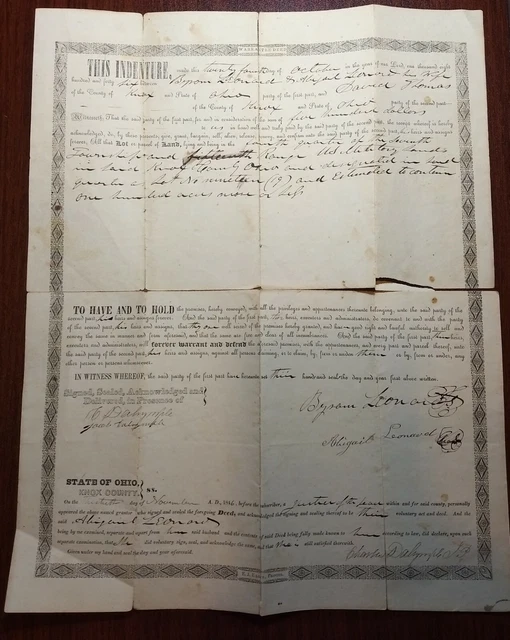 THIS INDENTURE, made this twenty fourth day of October in the year of our Lord, one thousand eight
hundred and forty six Between Byram Leonard & Abigail Leonard his wife
of the County of Knox and State of Ohio party of the first part, and David Thomas
of the County of Knox and State of Ohio party of the second part—
Witnesseth, That the said party of the first part, for and in consideration of the sum of five hundred dollars
to us in hand well and truly paid by the said party of the second part, the receipt whereof is hereby
acknowledged, do, by these presents, give, grant, bargain, sell, and confirm unto the said party of the second part, his heirs and assigns
forever, All that Lot or parcel of Land, lying and being in the fourth quarter of the
Township and fifteenth range U.S. Military lands
in said Knox County Ohio and designated in said
quarter as Lot No nineteen (19) and Estimated to contain
one hundred acres more or less
TO HAVE AND TO HOLD the premises, hereby conveyed, with all the privileges and appurtenances thereunto belonging, unto the said party of the
second part, his heirs and assigns forever. And the said party of the first part, for heirs, executors and administrators, do covenant to and with the party
of the second part, his heirs and assigns, that they are well seized of the premises hereby granted, and have a good right and lawful authority to sell and
convey the same in manner and form aforesaid, and that the same are free and clear of all incumbrances. And the said party of the first part, their heirs,
executors and administrators, will forever warrant and defend the aforesaid premises, with the appurtenances, and every part and parcel thereof, unto
the said party of the second part, his heirs and assigns, against all persons claiming, or to claim, by, from or under them or by, from or under, any
other person or persons whomsoever.
IN WITNESS WHEREOF, the said party of the first part have hereunto set their hand and seal the day and year first above written.
Signed, Sealed, Acknowledged and
Delivered, in Presence of
Byram Leonard
C Dalrymple
Jacob Dalrymple
Abigail Leonard
STATE OF OHIO,
KNOX COUNTY, ss.
On the day of November A. D., 1846, before the subscriber, a Justice of the peace within and for said county, personally
appeared the above named grantor who signed and sealed the foregoing Deed, and acknowledged the signing and sealing thereof to be their voluntary act and deed. And the
said Abigail Leonard
being by me examined, separate and apart from her said husband, and the contents of said Deed being fully made known to her according to law, did declare, upon such
separate examination, that she did voluntary sign, seal, and acknowledge the same, and that she is still satisfied therewith.
Given under my hand and seal the day and year aforesaid. Charles Dalrymple